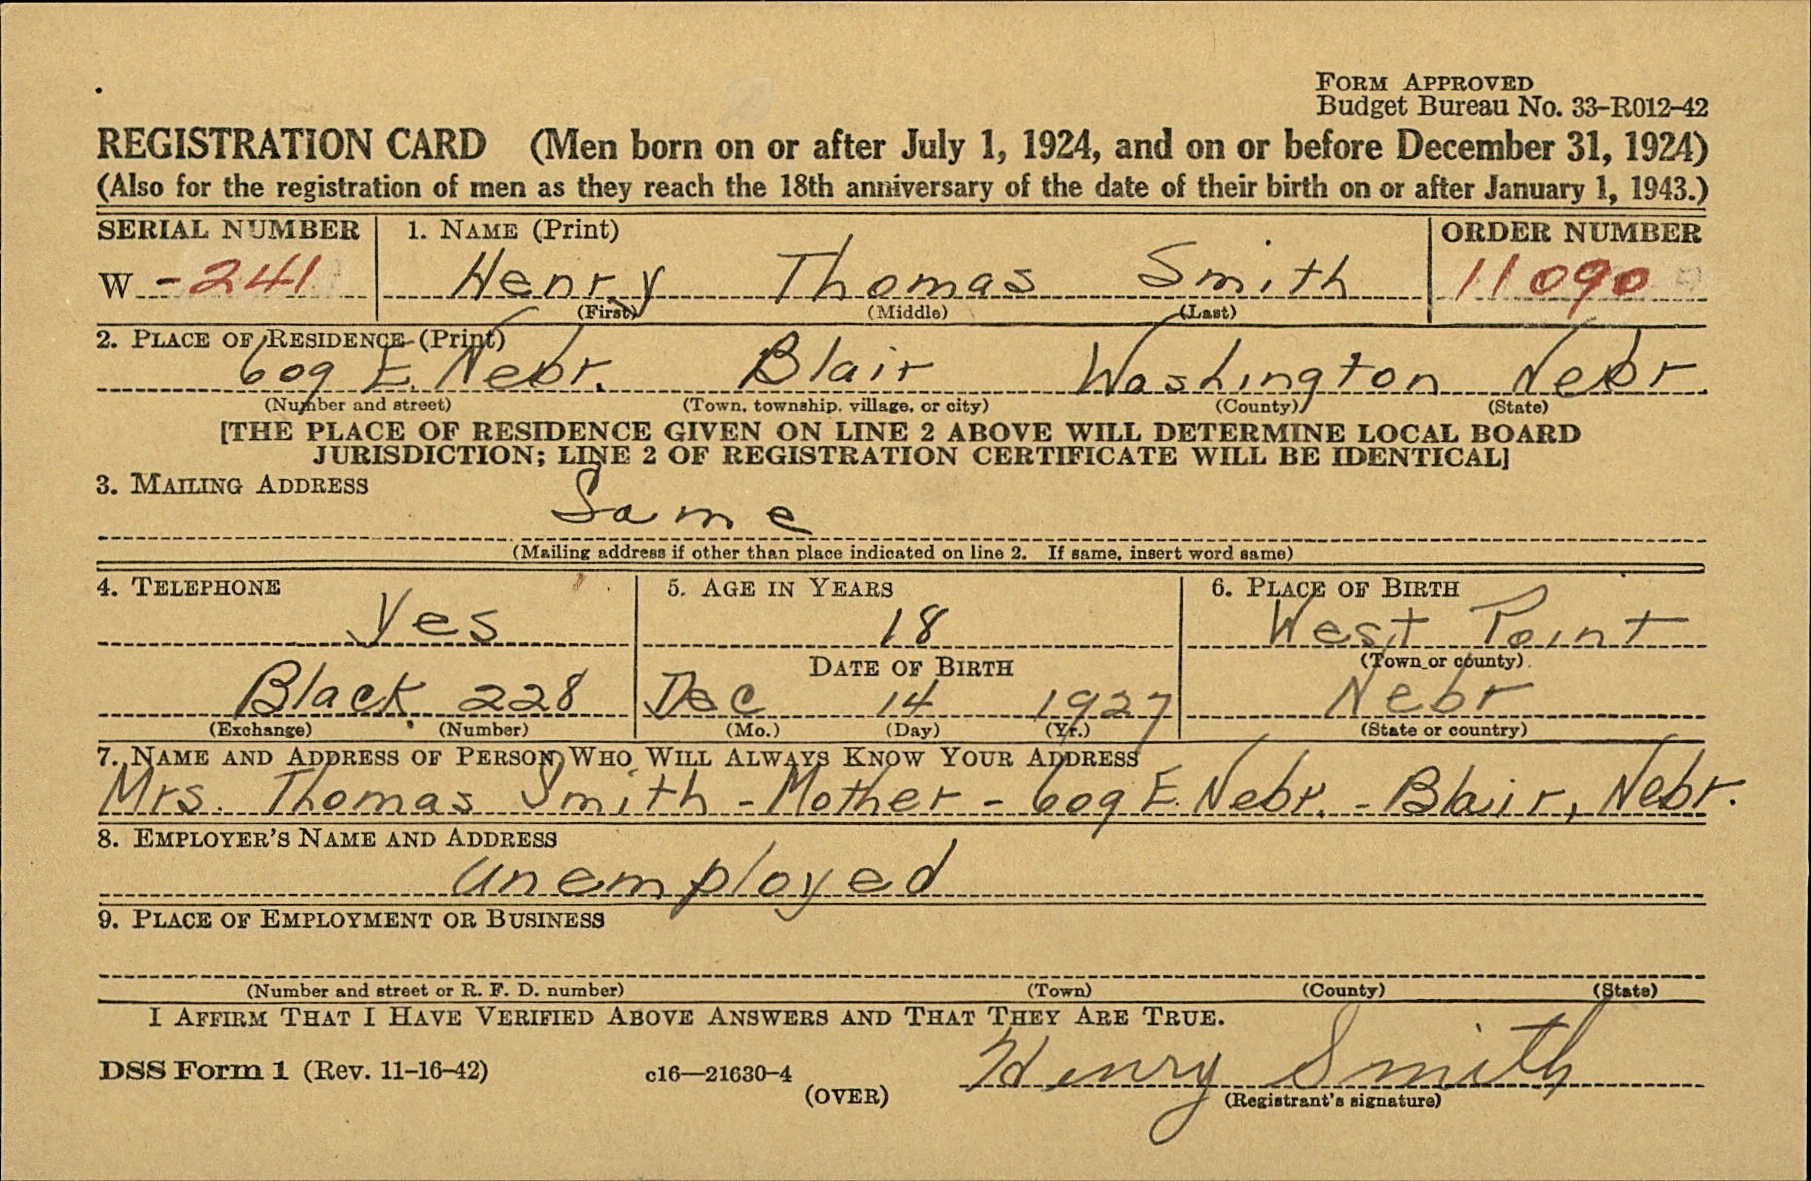 FORM APPROVED
Budget Bureau No. 33–R012–42
REGISTRATION CARD (Men born on or after July 1, 1924, and on or before December 31, 1924)
(Also for the registration of men as they reach the 18th anniversary of the date of their birth on or after January 1, 1943.)
SERIAL NUMBER 1. NAME (Print) ORDER NUMBER
W -241 Henry Thomas Smith 11090
(First) (Middle) (Last)
2. PLACE OF RESIDENCE (Print)
609 E. Nebr. Blair Washington Nebr.
(Number and street) (Town, township, village, or city) (County) (State)
[THE PLACE OF RESIDENCE GIVEN ON LINE 2 ABOVE WILL DETERMINE LOCAL BOARD
JURISDICTION; LINE 2 OF REGISTRATION CERTIFICATE WILL BE IDENTICAL]
3. MAILING ADDRESS
Same
(Mailing address if other than place indicated on line 2. If same, insert word same)
4. TELEPHONE 5. AGE IN YEARS 6. PLACE OF BIRTH
Yes 18 West Point
DATE OF BIRTH (Town or county)
Black 228 Dec 14 1927 Nebr
(Exchange) (Number) (Mo.) (Day) (Yr.) (State or country)
7. NAME AND ADDRESS OF PERSON WHO WILL ALWAYS KNOW YOUR ADDRESS
Mrs. Thomas Smith - Mother - 609 E. Nebr. - Blair, Nebr.
8. EMPLOYER'S NAME AND ADDRESS
unemployed
9. PLACE OF EMPLOYMENT OR BUSINESS
(Number and street or R. F. D. number) (Town) (County) (State)
I AFFIRM THAT I HAVE VERIFIED ABOVE ANSWERS AND THAT THEY ARE TRUE.
DSS Form 1 (Rev. 11–16–42) c16—21630–4 Henry Smith
(OVER) (Registrant's signature)